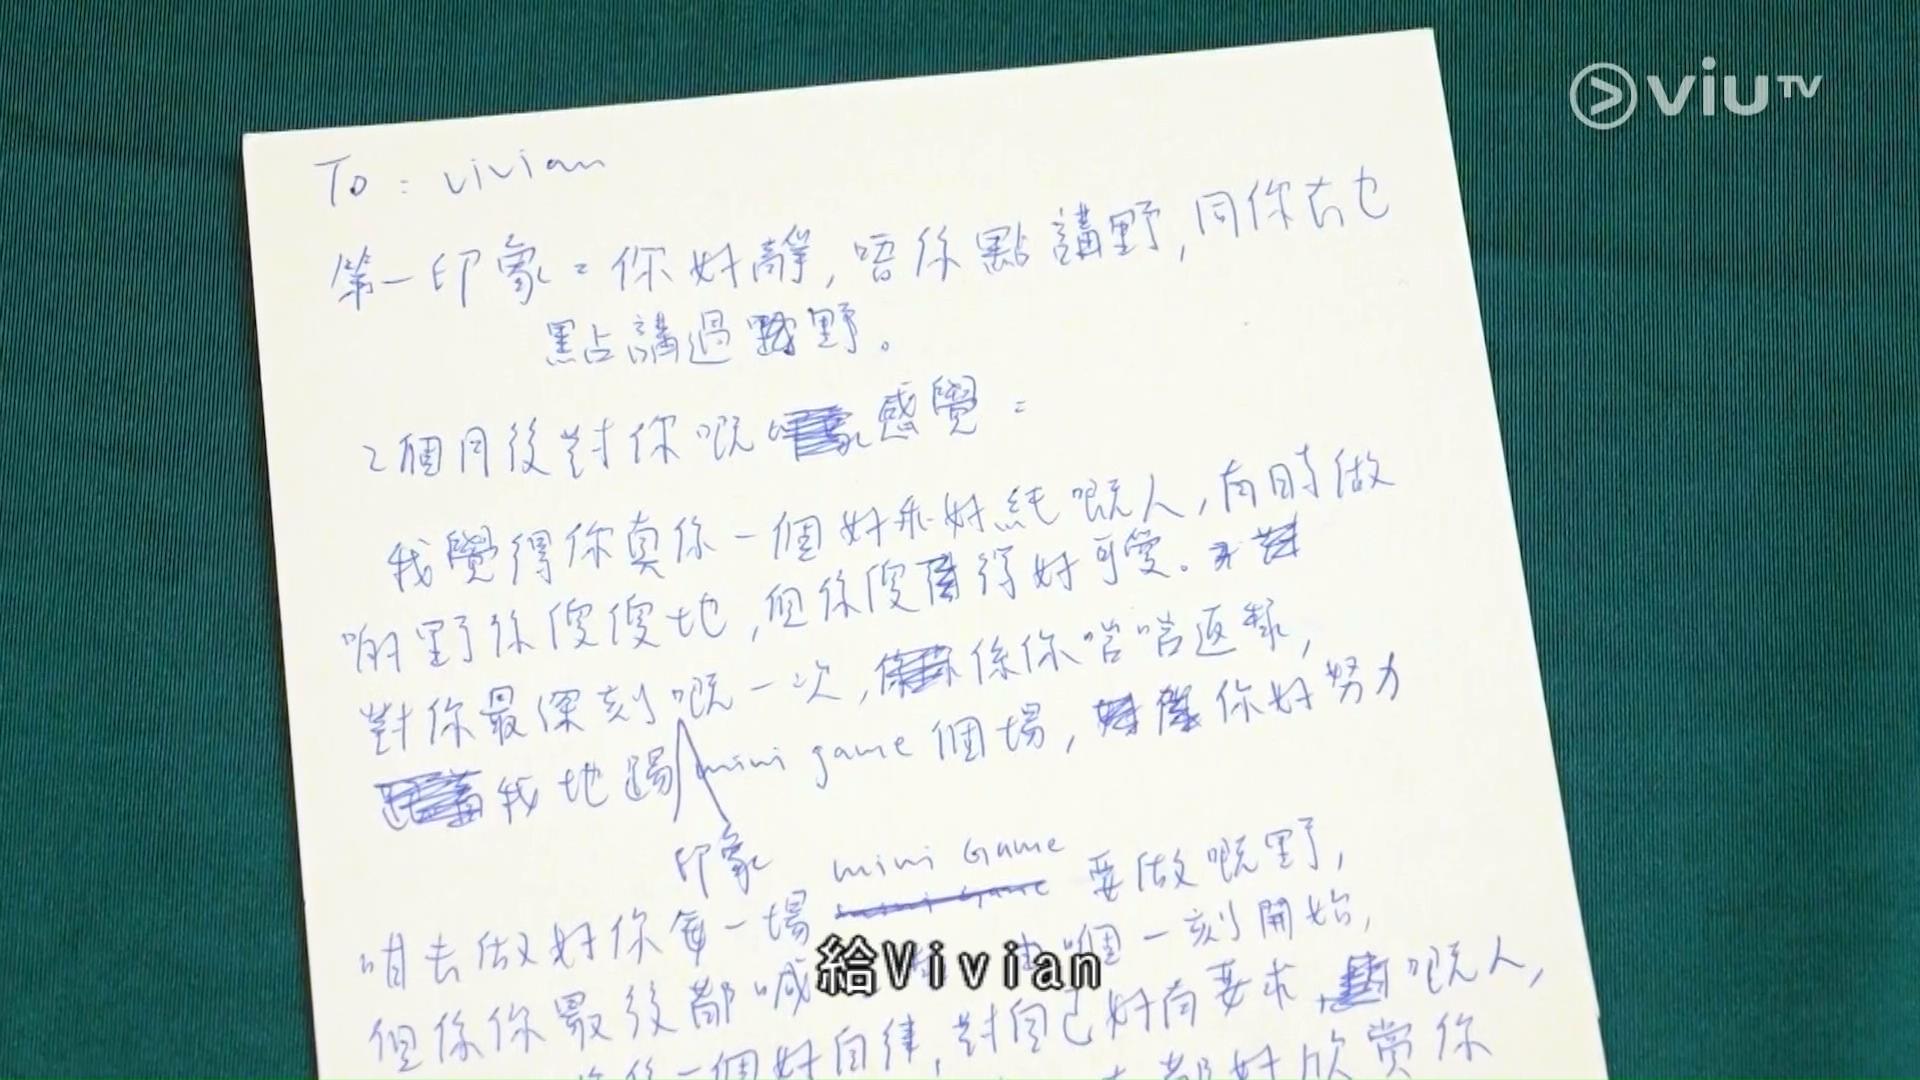 viuTV
To: Vivian
第一印象=你好靜,唔係點講野,同你冇乜
點講過野。
2個月後對你嘅感覺=
我覺得你真係一個好乖好純嘅人,有時做
啲野係傻傻地,但係傻得好可愛。
對你最深刻嘅一次,係你啱啱返嚟,
我地踢mini game個場,你好努力
印象
mini Game
咁去做好你每一場 要做嘅野,
但係你最後都喊 由嗰個一刻開始,
係一個好自律,對自己好有要求嘅人,
都好欣賞你
給Vivian